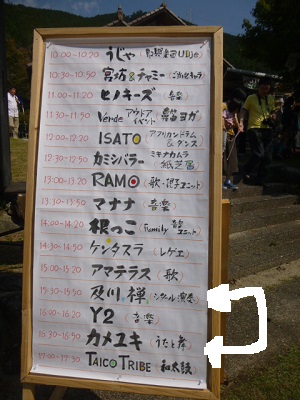 10:00-10:20 うじゃ
10:30-10:50 宮坊&チャミー (ご当地キャラ)
11:00-11:20 ヒノキーズ (音楽)
11:30-11:50 Verde アウトドアイベント 音浴ヨガ
12:00-12:20 ISATO (アフリカンドラム&ダンス)
12:30-12:50 カミシバラー (ミキナカムラ 紙芝居)
13:00-13:20 RAMO (歌・親子ユニット)
13:30-13:50 マナナ (音楽)
14:00-14:20 根っこ (Family 音楽ユニット)
14:30-14:50 ケンタスラ (レゲエ)
15:00-15:20 アマテラス (歌)
15:30-15:50 及川 禅 (シタール演奏)
16:00-16:20 Y2 (音楽)
16:30-16:50 カメユキ (うたと舞)
17:00-17:30 TAICO TRIBE (和太鼓)